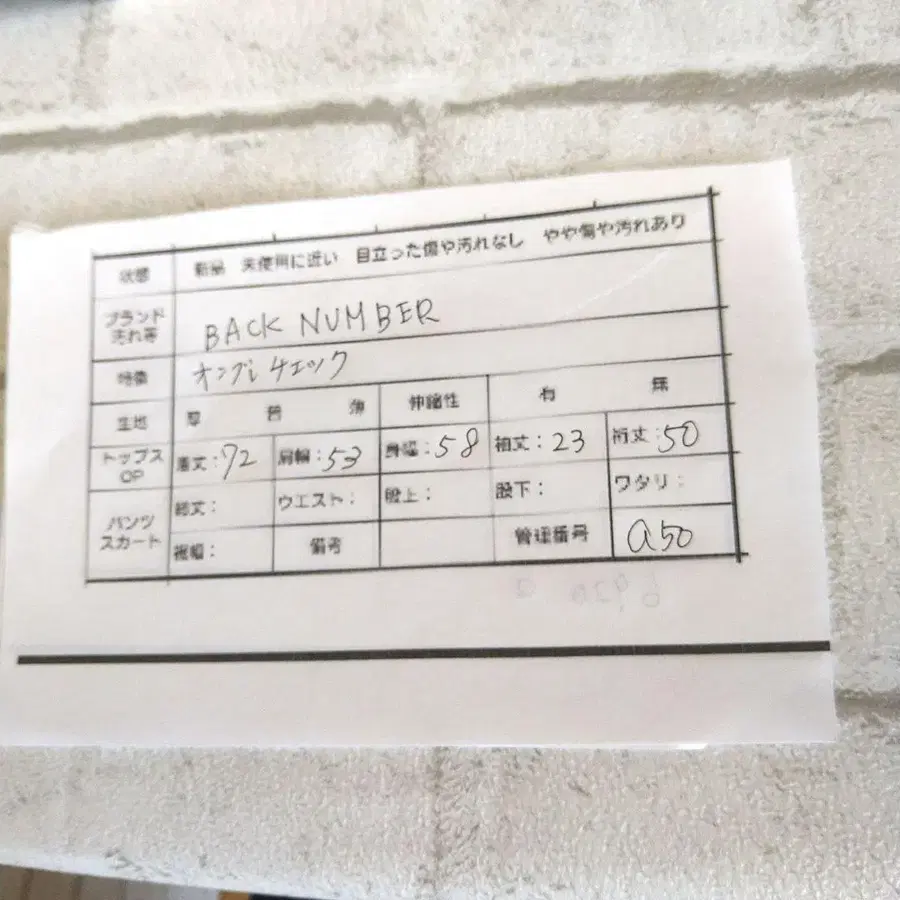 状態 新品 未使用に近い 目立った傷や汚れなし やや傷や汚れあり
ブランド
汚れ等
BACK NUMBER
特徴 オンブレチェック
生地 厚 普 薄 伸縮性 有 無
トップス
OP
着丈:72 肩幅:53 身幅:58 袖丈:23 裄丈:50
パンツ
スカート
総丈: ウエスト: 股上: 股下: ワタリ:
裾幅: 備考 管理番号 a50